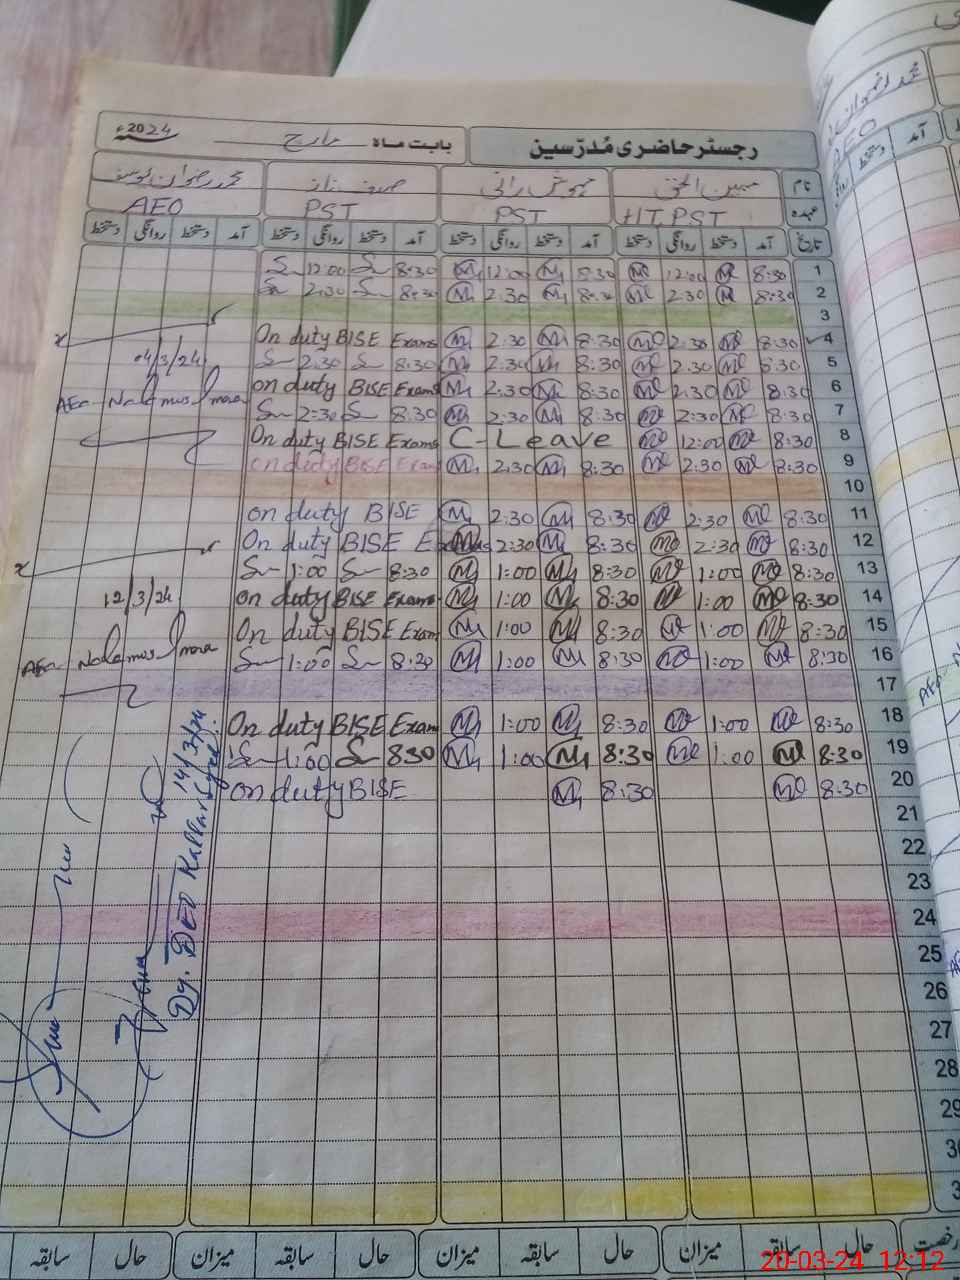 رجسٹر حاضری مُدرّسین بابت ماہ مارچ 2024ء
نام مبین الحق مہوش رانی صدف ناز محمد رضوان یوسف
عہدہ HT, PST PST PST AEO
تاریخ آمد دستخط روانگی دستخط آمد دستخط روانگی دستخط آمد دستخط روانگی دستخط آمد دستخط روانگی دستخط
12:00 8:30 12:00 8:30 12:00 8:30 1
2:30 8:30 2:30 8:30 2:30 8:30 2
3
On duty BISE Exams 2:30 8:30 2:30 8:30 4
04/3/24 2:30 8:30 2:30 8:30 2:30 8:30 5
on duty BISE Exams 2:30 8:30 2:30 8:30 6
AEO 2:30 8:30 2:30 8:30 2:30 8:30 7
On duty BISE Exams C-Leave 12:00 8:30 8
on duty BISE Exam 2:30 8:30 2:30 8:30 9
10
on duty BISE 2:30 8:30 2:30 8:30 11
On duty BISE Exams 2:30 8:30 2:30 8:30 12
1:00 8:30 1:00 8:30 1:00 8:30 13
12/3/24 on duty BISE Exams 1:00 8:30 1:00 8:30 14
On duty BISE Exam 1:00 8:30 1:00 8:30 15
AEO 1:00 8:30 1:00 8:30 1:00 8:30 16
17
On duty BISE Exam 1:00 8:30 1:00 8:30 18
1:00 830 1:00 8:30 1:00 8:30 19
on duty BISE 8:30 8:30 20
14/3/24
Dy. DEO
21
22
23
24
25
26
27
28
29
30
3
رخصت حال سابقہ میزان حال سابقہ میزان حال سابقہ میزان حال سابقہ
20-03-24 12:12
AEO
آمد دستخط